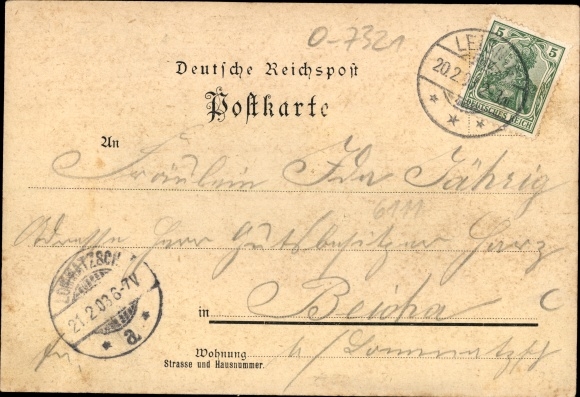 0-7321
5 5
LEI
20.2.
DEUTSCHES REICH
Deutsche Reichspost
Postkarte
An
Fräulein Ida Jährig
6111
Adresse Herr Gutsbesitzer Harz
LOMMATZSCH
21.2.03.6-7V
* a. *
in Beicha
Wohnung a/Lommatzsch
Strasse und Hausnummer.